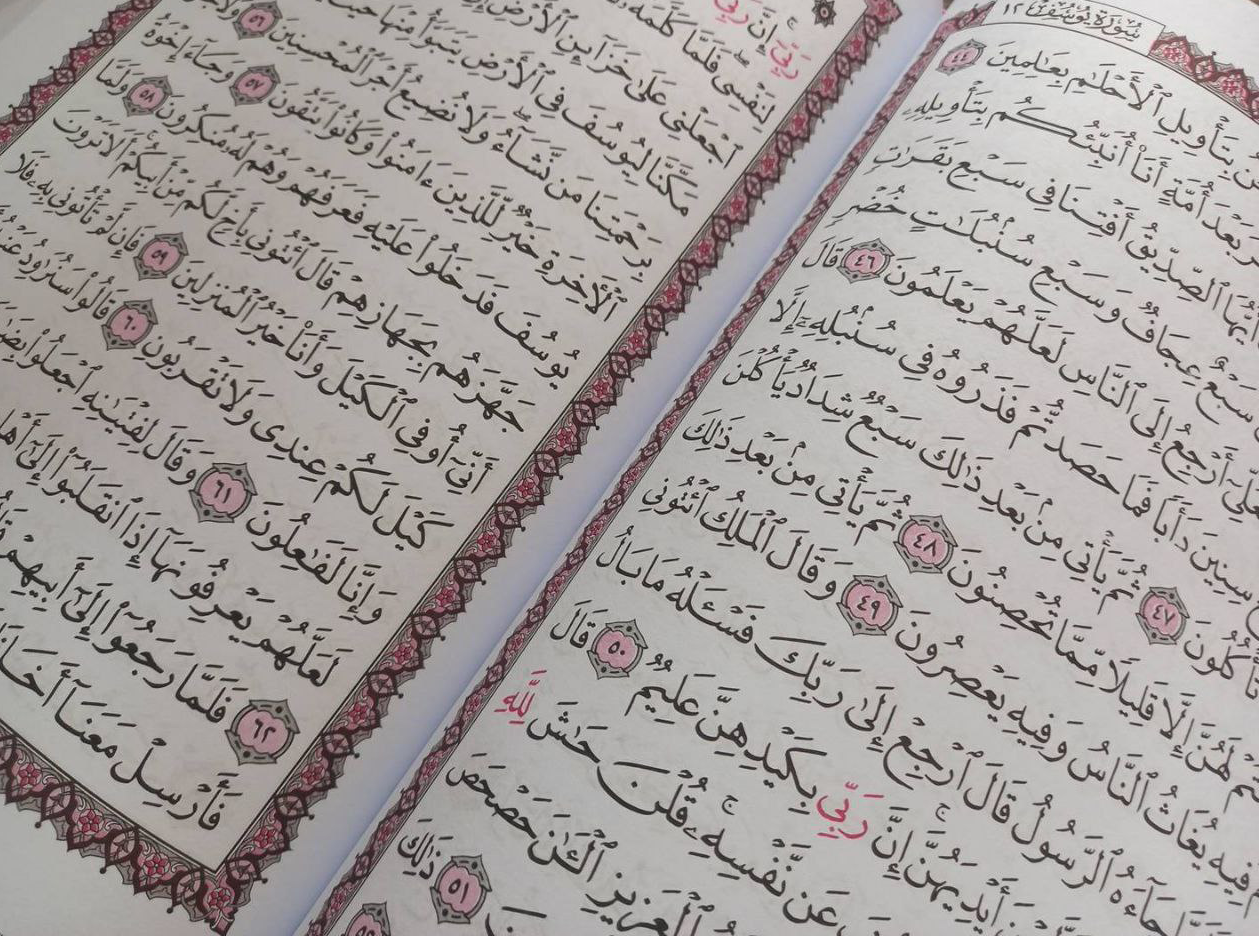 سُورَةُ يُوسُفَ ١٢
بِتَأْوِيلِ ٱلْأَحْلَٰمِ بِعَٰلِمِينَ ٤٤
بَعْدَ أُمَّةٍ أَنَا۠ أُنَبِّئُكُم بِتَأْوِيلِهِۦ
ٱلصِّدِّيقُ أَفْتِنَا فِى سَبْعِ بَقَرَٰتٍ
سَبْعٌ عِجَافٌ وَسَبْعِ سُنۢبُلَٰتٍ خُضْرٍ
أَرْجِعُ إِلَى ٱلنَّاسِ لَعَلَّهُمْ يَعْلَمُونَ ٤٦ قَالَ
سِنِينَ دَأَبًا فَمَا حَصَدتُّمْ فَذَرُوهُ فِى سُنۢبُلِهِۦٓ إِلَّا
تَأْكُلُونَ ٤٧ ثُمَّ يَأْتِى مِنۢ بَعْدِ ذَٰلِكَ سَبْعٌ شِدَادٌ يَأْكُلْنَ
لَهُنَّ إِلَّا قَلِيلًا مِّمَّا تُحْصِنُونَ ٤٨ ثُمَّ يَأْتِى مِنۢ بَعْدِ ذَٰلِكَ
فِيهِ يُغَاثُ ٱلنَّاسُ وَفِيهِ يَعْصِرُونَ ٤٩ وَقَالَ ٱلْمَلِكُ ٱئْتُونِى
جَآءَهُ ٱلرَّسُولُ قَالَ ٱرْجِعْ إِلَىٰ رَبِّكَ فَسْـَٔلْهُ مَا بَالُ
أَيْدِيَهُنَّ ۚ إِنَّ رَبِّى بِكَيْدِهِنَّ عَلِيمٌ ٥٠ قَالَ
عَن نَّفْسِهِۦ ۚ قُلْنَ حَٰشَ لِلَّهِ
ٱلْعَزِيزِ ٱلْـَٰٔنَ حَصْحَصَ
٥١ ذَٰلِكَ
رَبِّىٓ ۚ إِنَّ رَبِّى
لِنَفْسِى فَلَمَّا كَلَّمَهُۥ
ٱجْعَلْنِى عَلَىٰ خَزَآئِنِ ٱلْأَرْضِ
مَكَّنَّا لِيُوسُفَ فِى ٱلْأَرْضِ يَتَبَوَّأُ مِنْهَا حَيْثُ
بِرَحْمَتِنَا مَن نَّشَآءُ ۖ وَلَا نُضِيعُ أَجْرَ ٱلْمُحْسِنِينَ ٥٦ وَلَأَجْرُ
ٱلْءَاخِرَةِ خَيْرٌ لِّلَّذِينَ ءَامَنُوا۟ وَكَانُوا۟ يَتَّقُونَ ٥٧ وَجَآءَ إِخْوَةُ
يُوسُفَ فَدَخَلُوا۟ عَلَيْهِ فَعَرَفَهُمْ وَهُمْ لَهُۥ مُنكِرُونَ ٥٨ وَلَمَّا
جَهَّزَهُم بِجَهَازِهِمْ قَالَ ٱئْتُونِى بِأَخٍ لَّكُم مِّنْ أَبِيكُمْ ۚ أَلَا تَرَوْنَ
أَنِّىٓ أُوفِى ٱلْكَيْلَ وَأَنَا۠ خَيْرُ ٱلْمُنزِلِينَ ٥٩ فَإِن لَّمْ تَأْتُونِى بِهِۦ فَلَا
كَيْلَ لَكُمْ عِندِى وَلَا تَقْرَبُونِ ٦٠ قَالُوا۟ سَنُرَٰوِدُ عَنْهُ
وَإِنَّا لَفَٰعِلُونَ ٦١ وَقَالَ لِفِتْيَٰنِهِ ٱجْعَلُوا۟
لَعَلَّهُمْ يَعْرِفُونَهَآ إِذَا ٱنقَلَبُوٓا۟ إِلَىٰٓ
٦٢ فَلَمَّا رَجَعُوٓا۟ إِلَىٰٓ أَبِيهِمْ
فَأَرْسِلْ مَعَنَآ أَخَانَا